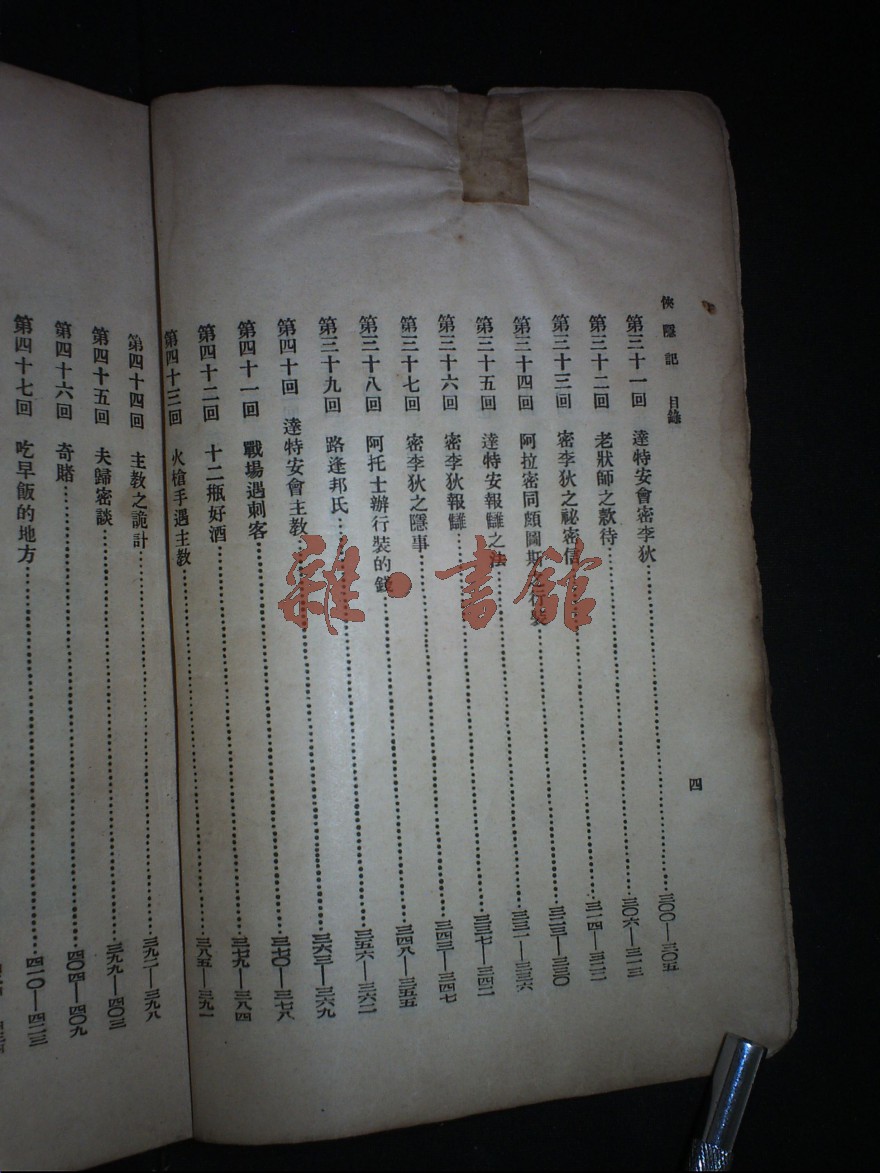 俠隱記 目錄 四
第三十一回 達特安會密李狄……三〇〇—三〇五
第三十二回 老狀師之款待……三〇六—三一三
第三十三回 密李狄之祕密信……三一四—三二二
第三十四回 阿拉密同頗圖斯之行裝……三二三—三三〇
第三十五回 達特安報讎之法……三三一—三三六
第三十六回 密李狄報讎……三三七—三四二
第三十七回 密李狄之隱事……三四三—三四七
第三十八回 阿托士辦行裝的錢……三四八—三五五
第三十九回 路逢邦氏……三五六—三六二
第四十回 達特安會主教……三六三—三六九
第四十一回 戰場遇刺客……三七〇—三七八
第四十二回 十二瓶好酒……三七九—三八四
第四十三回 火槍手遇主教……三八五—三九一
第四十四回 主教之詭計……三九二—三九八
第四十五回 夫歸密談……三九九—四〇三
第四十六回 奇賭……四〇四—四〇九
第四十七回 吃早飯的地方……四一〇—四二三
雜·書館